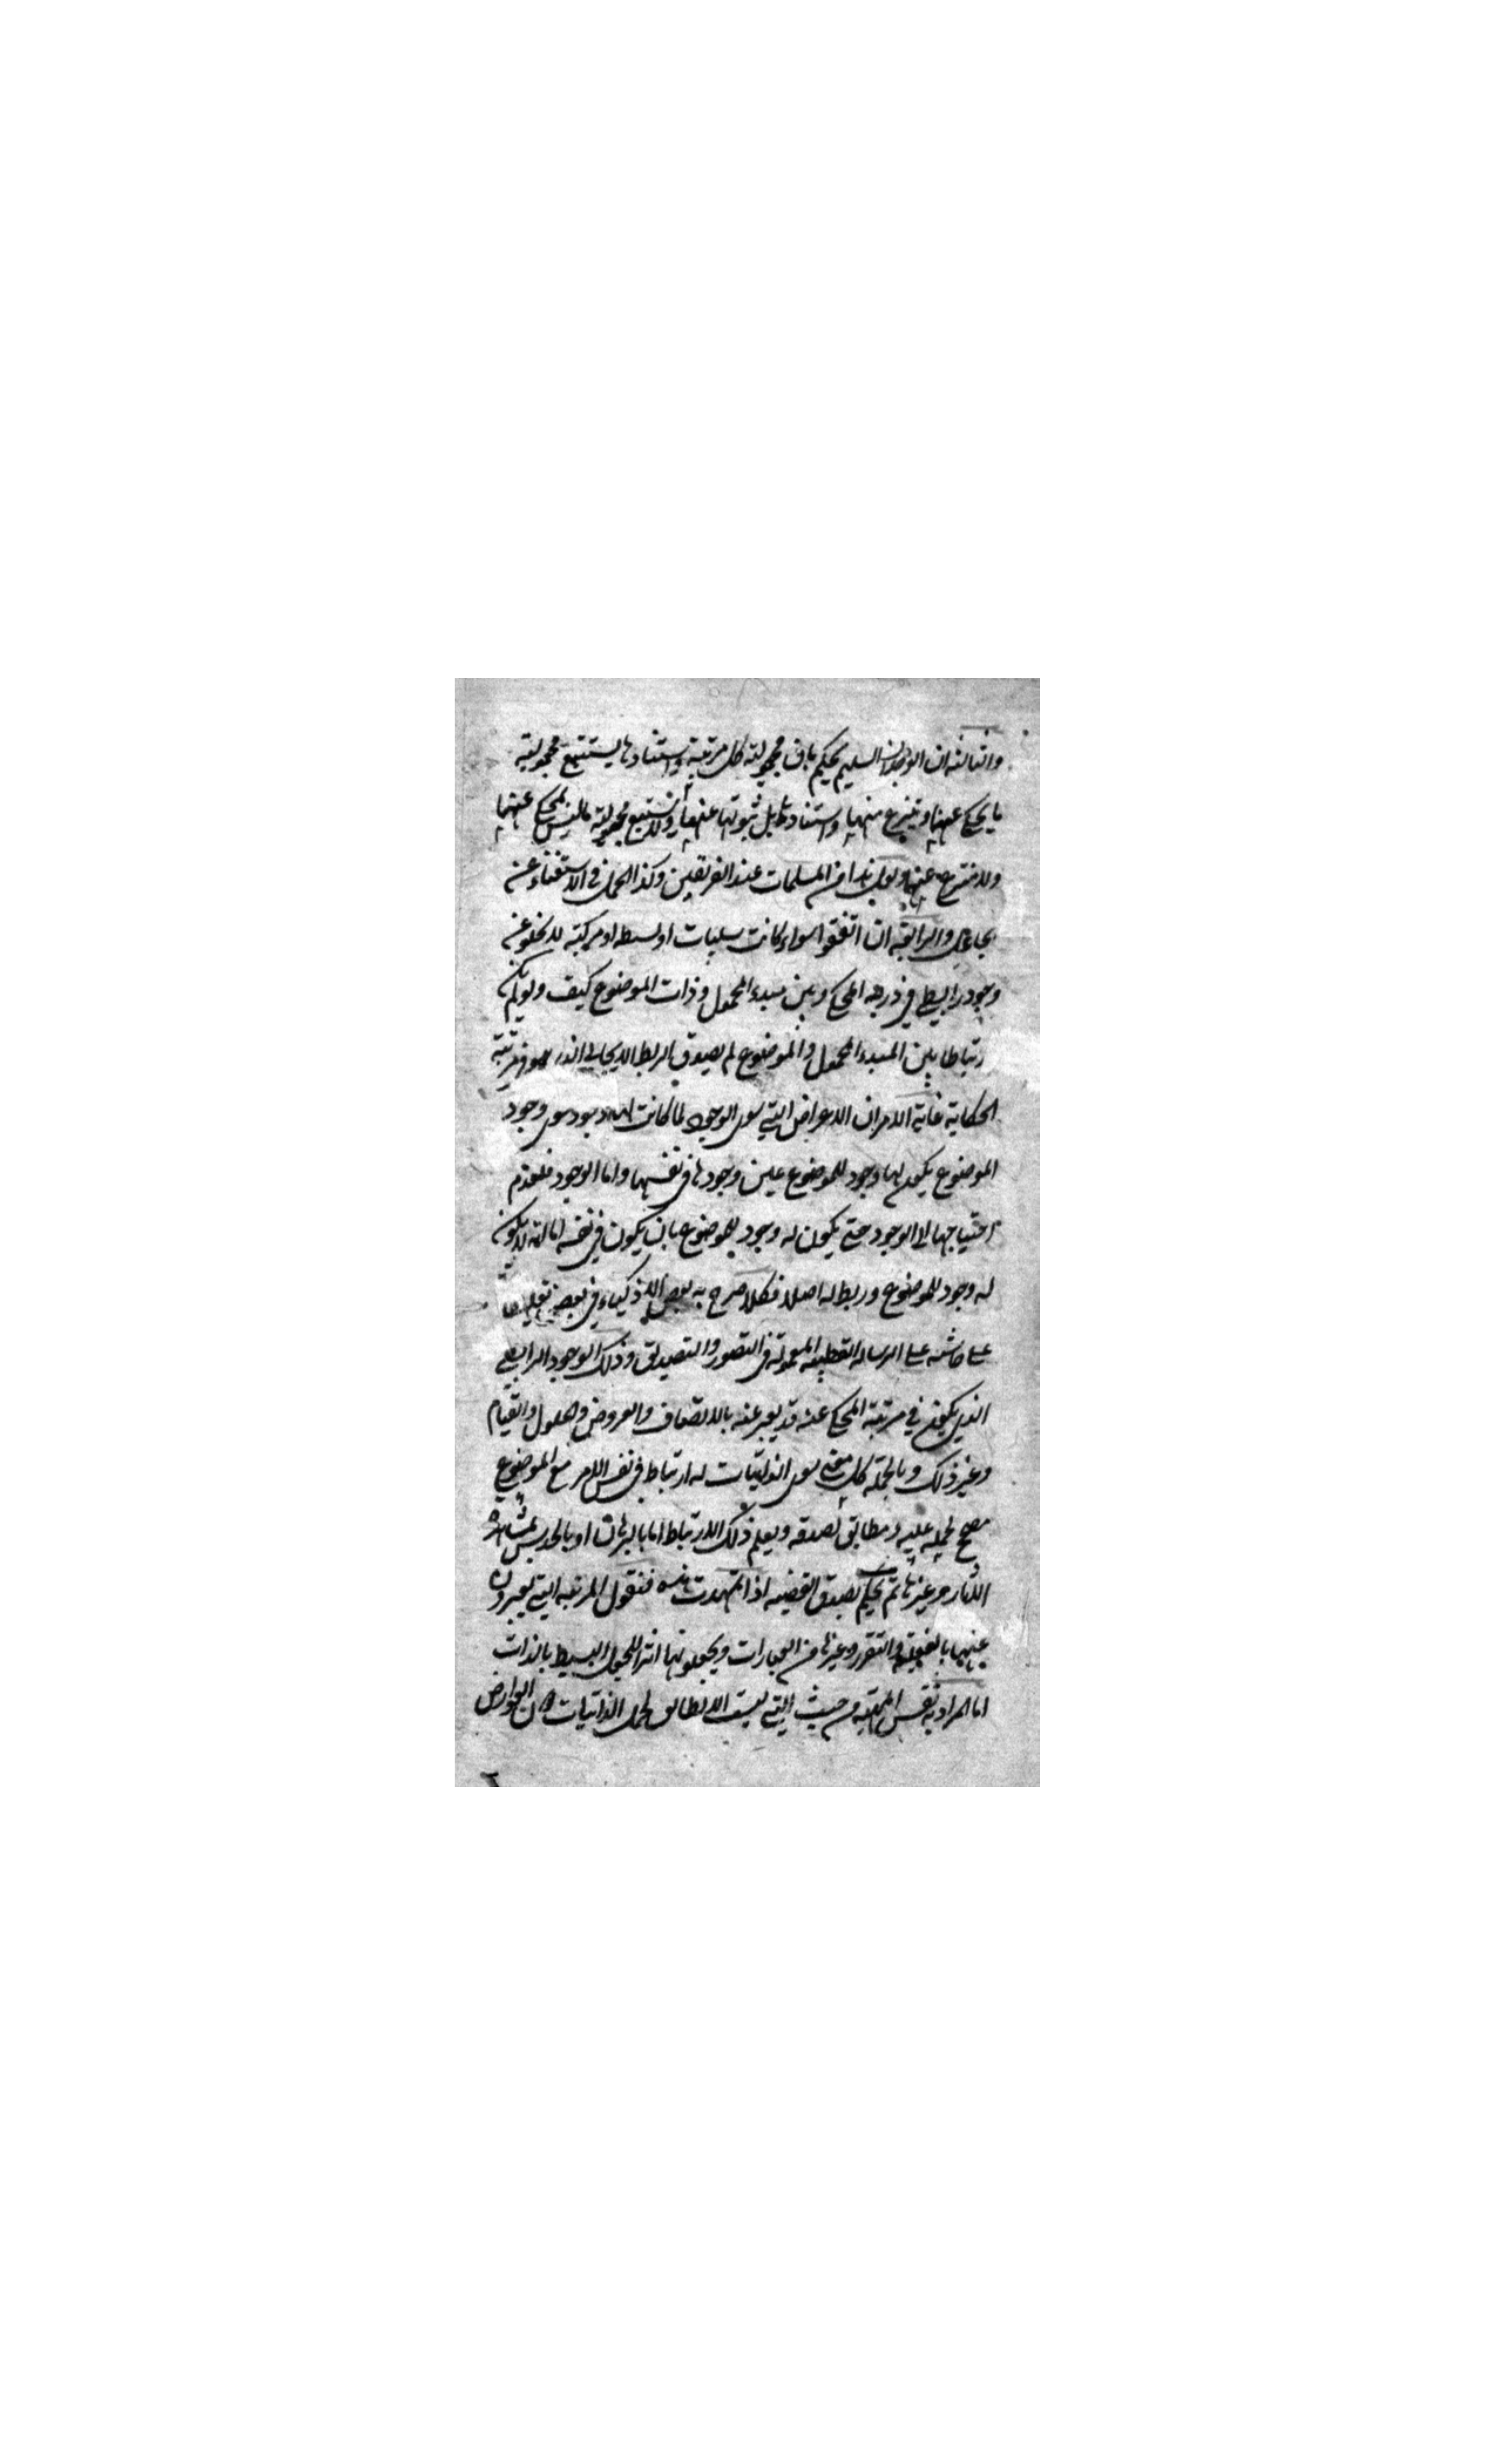 والثالثة ان الوجدان السليم يحكم بان مجعولية كل مرتبة واستنادها يستتبع مجعولية
ما يحكى عنها وينتزع منها واستناده بل ثبوتها عنها ولا يستتبع مجعولية ما ليس بمحكى عنها
ولا منتزع عنها ولعل هذا من المسلمات عند الفريقين وكذا الحمل في الاستغناء عن
الجاعل والرابعة ان اتفقوا سواء كانت سلبيات او بسيطه او مركبة لا يخلو عن
وجود رابطي في درجة المحكي وبين مبدء المحمول وذات الموضوع كيف ولو لم يكن
ارتباطا بين المبدء المحمول والموضوع لم يصدق الربط الايجابي الذي هو في مرتبة
الحكاية غاية الامر ان الاعراض التي سوى الوجود لما كانت وجود سوى وجود
الموضوع يكون لها وجود للموضوع عين وجودها في نفسها واما الوجود فلعدم
احتياجها الى الوجود حتى يكون له وجود للموضوع بان يكون في نفسه اما انه لا يكون
له وجود للموضوع وربط له اصلا فكلا صرح به بعض الاذكياء في بعض تعليقاته
على حاشيه على الرساله القطبيه المعمولة في التصور والتصديق وذلك الوجود الرابطي
الذي يكون في مرتبة المحكي عنه قد يعبر عنه بالاتصاف والعروض والحلول والقيام
وغير ذلك وبالجملة كل معنى سوى الذاتيات له ارتباط في نفس الامر مع الموضوع
مصحح لحمله عليه ومطابق لصدقه ويعلم ذلك الارتباط اما بالبرهان او بالحدس بمشاهدة
الآثار وغيرها ثم يحكم بصدق القضيه اذا تمهدت هذه فنقول المرتبه التي يعبرون
عنها بالفعلية والتقرر وغيرها من العبارات ويجعلونها اثرا للجعل البسيط بالذات
اما المراد به نفس الماهية من حيث التي ليست الا مطابق لحمل الذاتيات دون العوارض